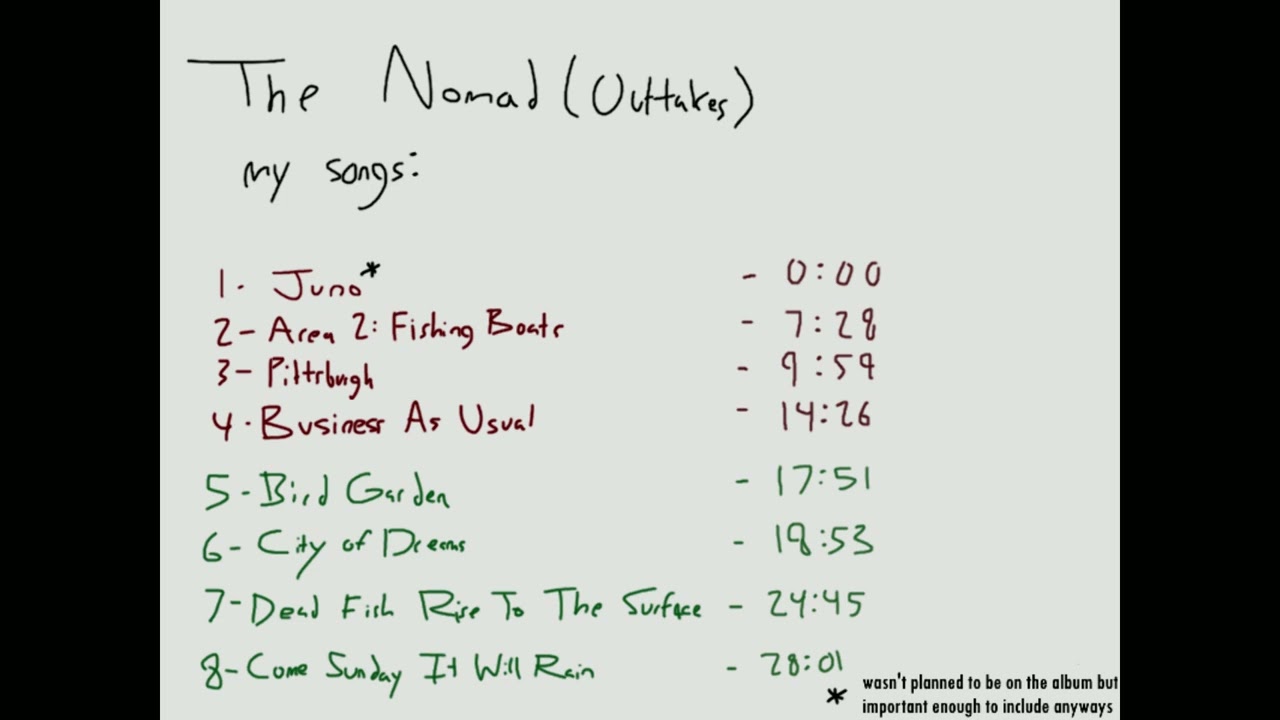 The Nomad (Outtakes)
my songs:
1. Juno* - 0:00
2- Area 2: Fishing Boats - 7:28
3- Pittsburgh - 9:59
4. Business As Usual - 14:26
5- Bird Garden - 17:51
6- City of Dreams - 18:53
7- Dead Fish Rise To The Surface - 24:45
8- Come Sunday It Will Rain - 28:01
* wasn't planned to be on the album but
important enough to include anyways